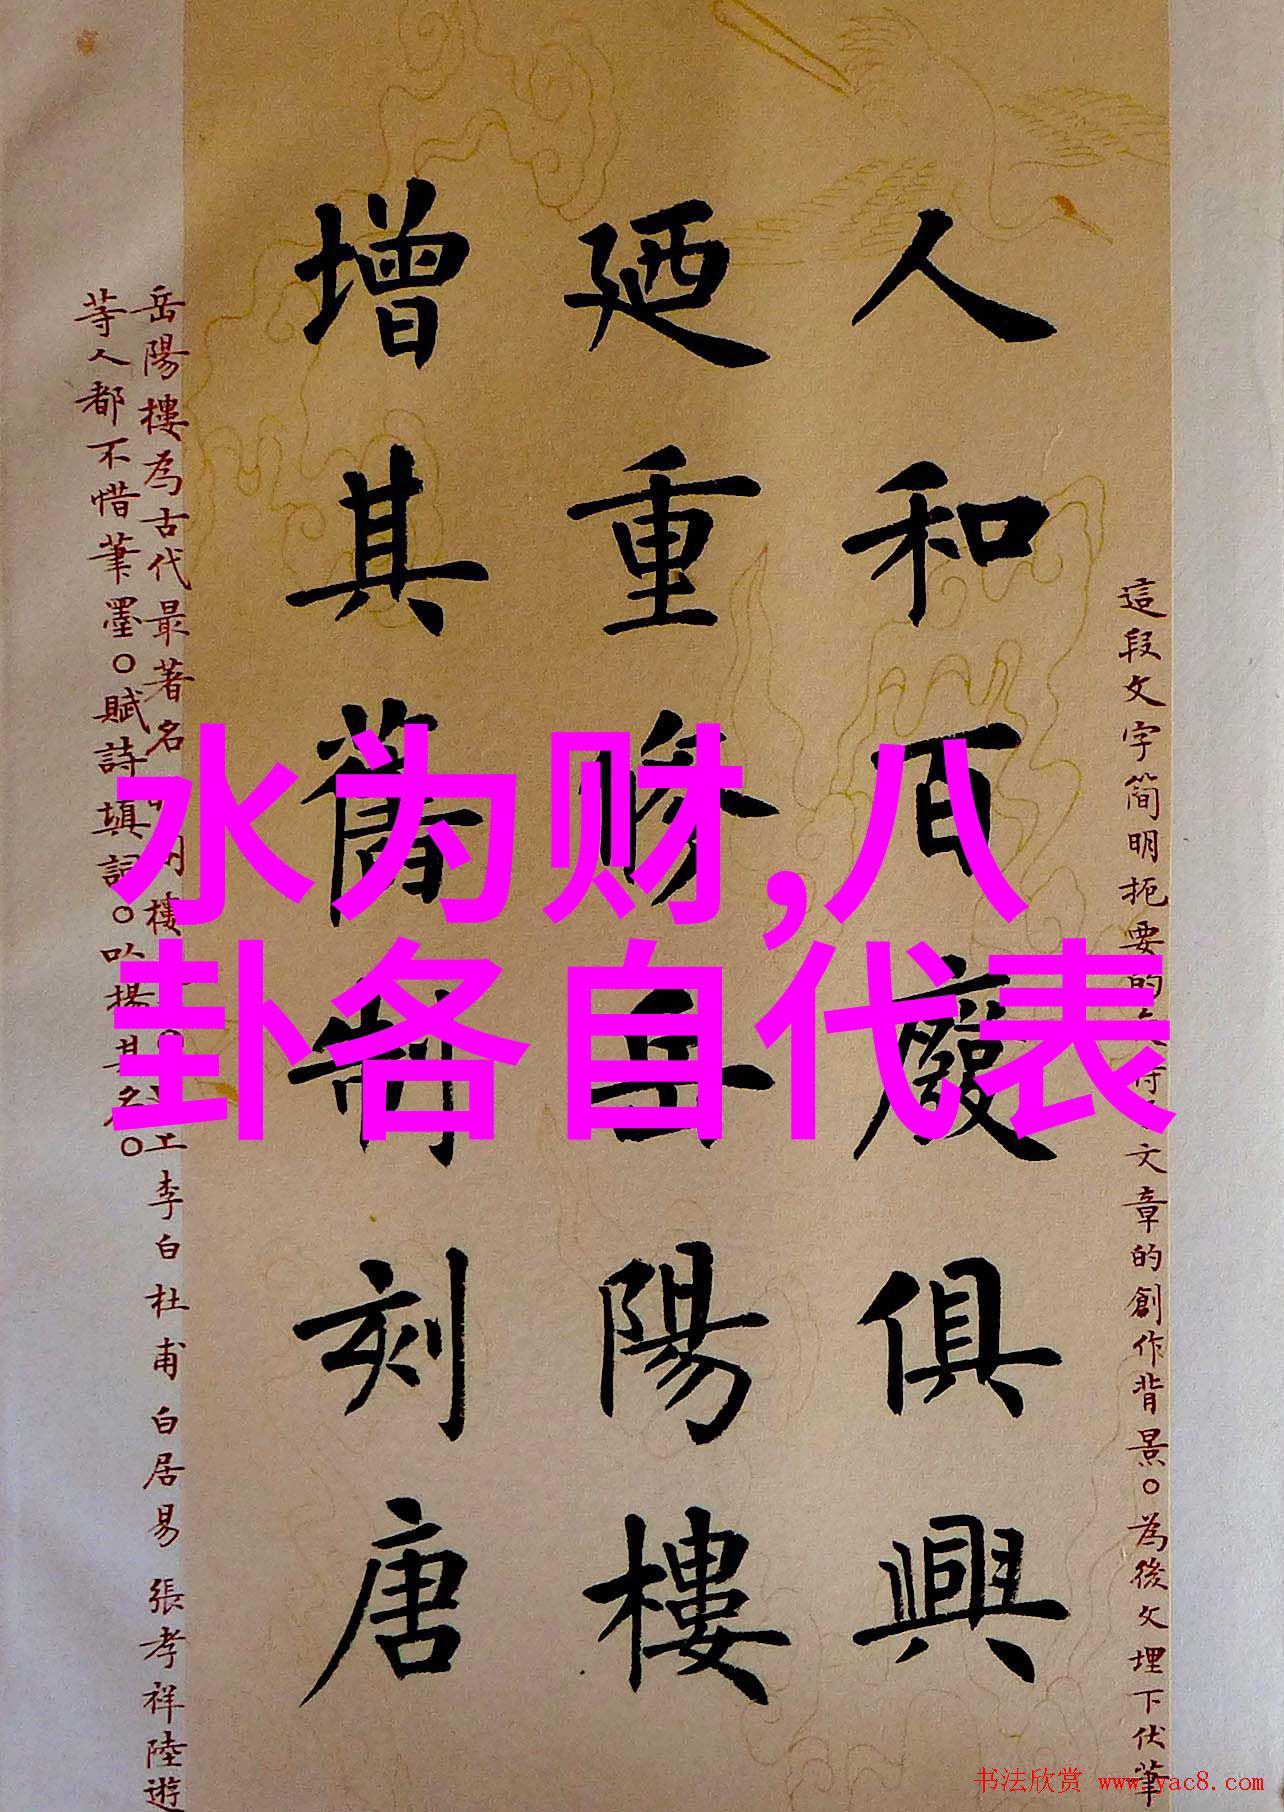 水为财,八
卦各自代表
這段文字简明扼要的文章的創作背景。為後文埋下伏筆
人和百廢俱興
廼重修岳陽樓
增其舊制刻唐
岳陽樓為古代最著名樓。李白杜甫白居易張孝祥陸遊
等人都不惜筆墨。賦詩填詞。以揚其名。
书法欣赏 www.yac8.com